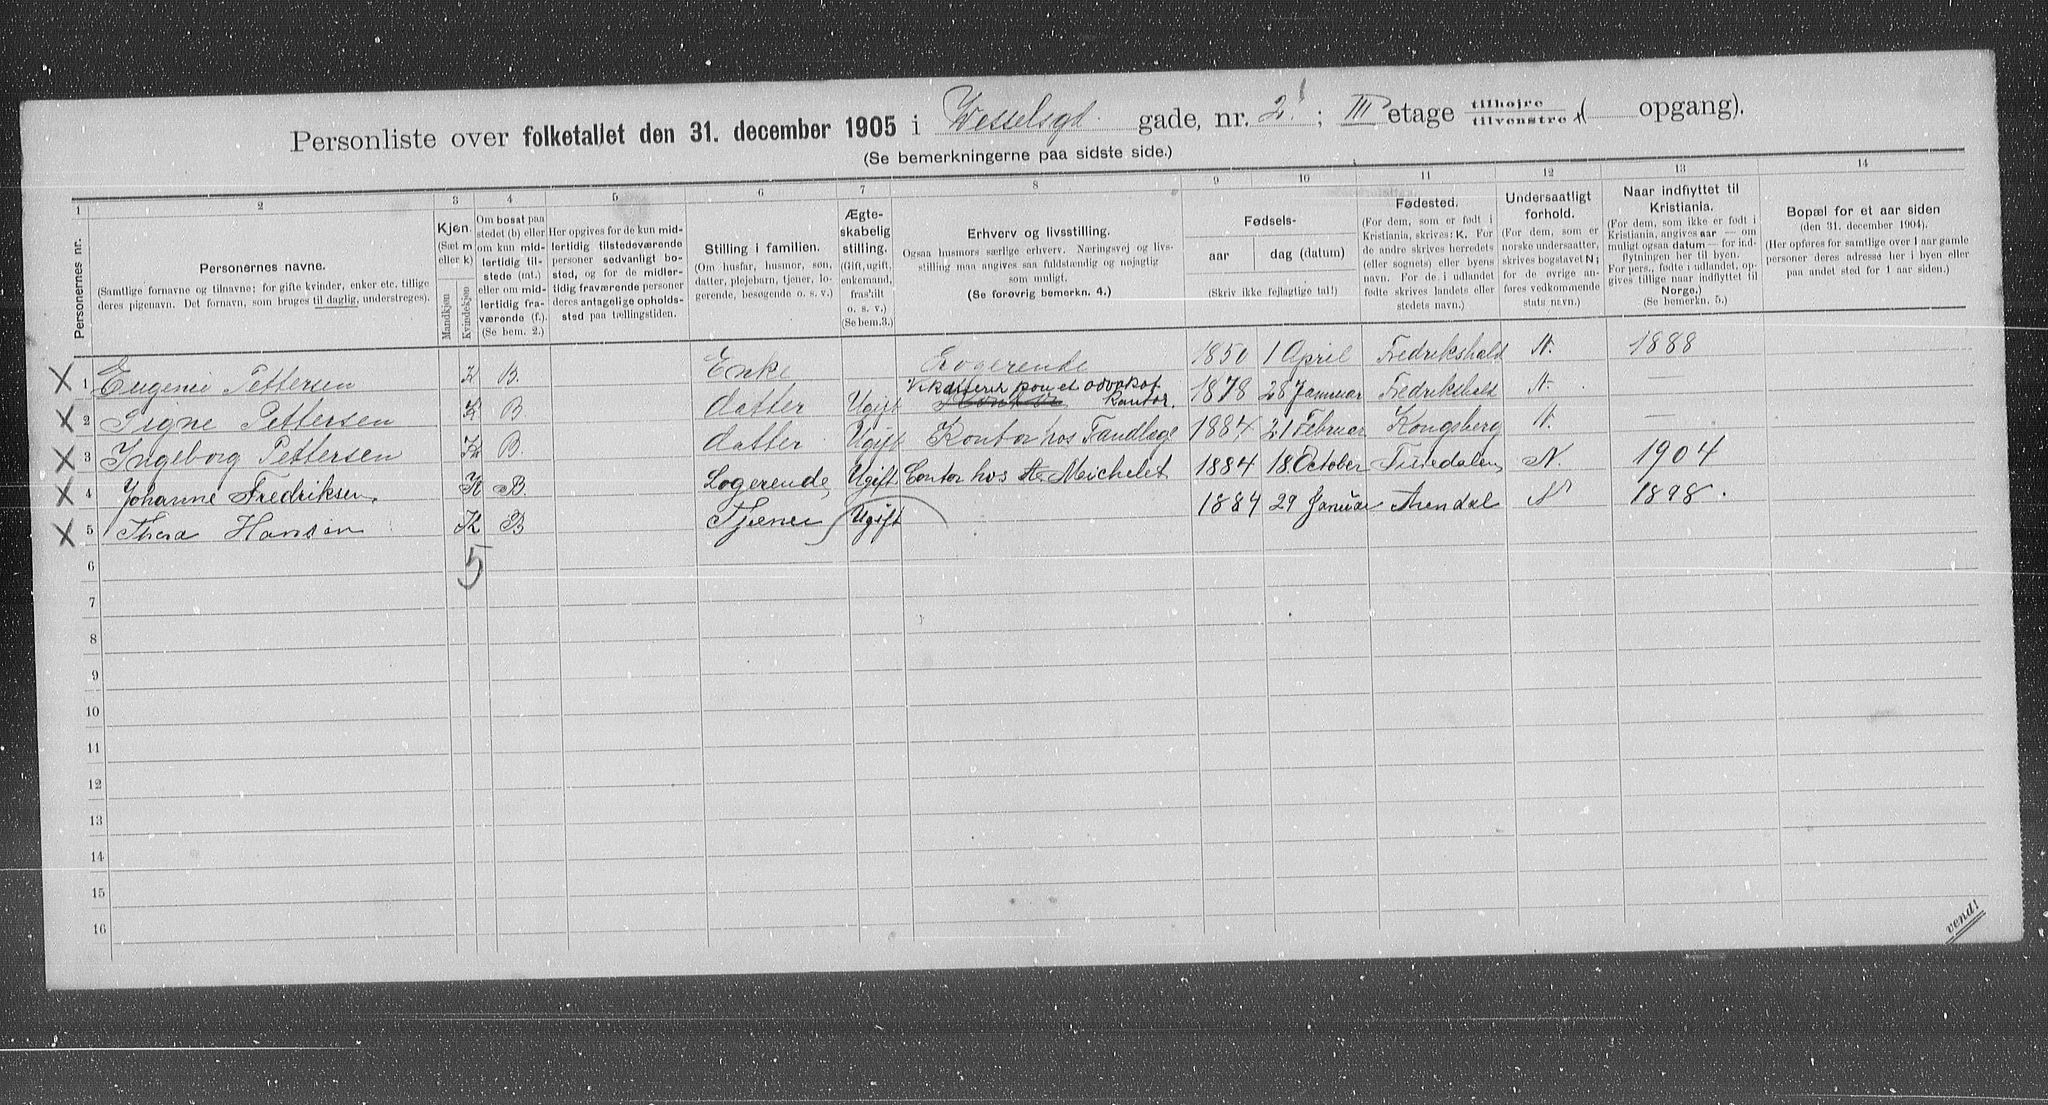 Personliste over folketallet den 31. december 1905 i Wesselsgt. gade, nr. 2 ; III etage tilhøjre tilvenstre ( opgang).
(Se bemerkningerne paa sidste side.)
1 2 3 4 5 6 7 8 9 10 11 12 13 14
Personernes nr.
Personernes navne.
(Samtlige fornavne og tilnavne; for gifte kvinder, enker etc. tillige
deres pigenavn. Det fornavn, som bruges til daglig, understreges).
Kjøn.
(Sæt m
eller k)
Mandkjøn
Kvindekjøn
Om bosat paa
stedet (b) eller
om kun mid-
lertidig til-
stede (mt.)
eller om mid-
lertidig fra-
værende (f.).
(Se bem. 2.)
Her opgives for de kun mid-
lertidig tilstedeværende
personer sedvanligt bo-
sted, og for de midler-
tidig fraværende personer
deres antagelige opholds-
sted paa tællingstiden.
Stilling i familien.
(Om husfar, husmor, søn,
datter, plejebarn, tjener, lo-
gerende, besøgende o. s. v.)
Ægte-
skabelig
stilling.
(Gift, ugift,
enkemand,
fraskilt
o. s. v.)
(Se bem.3.)
Erhverv og livsstilling.
Ogsaa husmors særlige erhverv. Næringsvej og livs-
stilling maa angives saa fuldstændig og nøjagtig
som muligt.
(Se forøvrig bemerkn. 4.)
Fødsels-
aar dag (datum)
(Skriv ikke fejlagtige tal!)
Fødested.
(For dem, som er født i
Kristiania, skrives: K. For
de andre skrives herredets
(eller sognets) eller byens
navn. For de i udlandet
fødte skrives landets eller
stedets navn.)
Undersaatligt
forhold.
(For dem, som er
norske undersaatter,
skrives bogstavet N;
for de øvrige an-
føres vedkommende
stats navn.)
Naar indflyttet til
Kristiania.
(For dem, som ikke er født i
Kristiania, angives aar — om
muligt ogsaa datum — for ind-
flytningen her til byen.
For pers., fødte i udlandet, op-
gives tillige naar indflyttet til
Norge.)
(Se bemerkn. 5.)
Bopæl for et aar siden
(den 31. december 1904).
(Her opføres for samtlige over 1 aar gamle
personer deres adresse her i byen eller
paa andet sted for 1 aar siden.)
X 1 Eugenie Pettersen K B. Enke Logerende 1850 1 April Fredrikshald N. 1888
X 2 Signe Pettersen K B datter Ugift Vikarierer paa et advokat kontor. 1878 28 Januar Fredrikshald N.
X 3 Ingeborg Pettersen K B. datter Ugift Kontor hos Tandlæge 1884 21 Februar Kongsberg N. —
X 4 Johanne Fredriksen. K B. Logerende, Ugift Contor hos Michelet 1884 18. October N. 1904
X 5 Thora Hansen K B Tjener Ugift 1884 29 Januar Arendal N 1898.
5
6
7
8
9
10
11
12
13
14
15
16
vend!